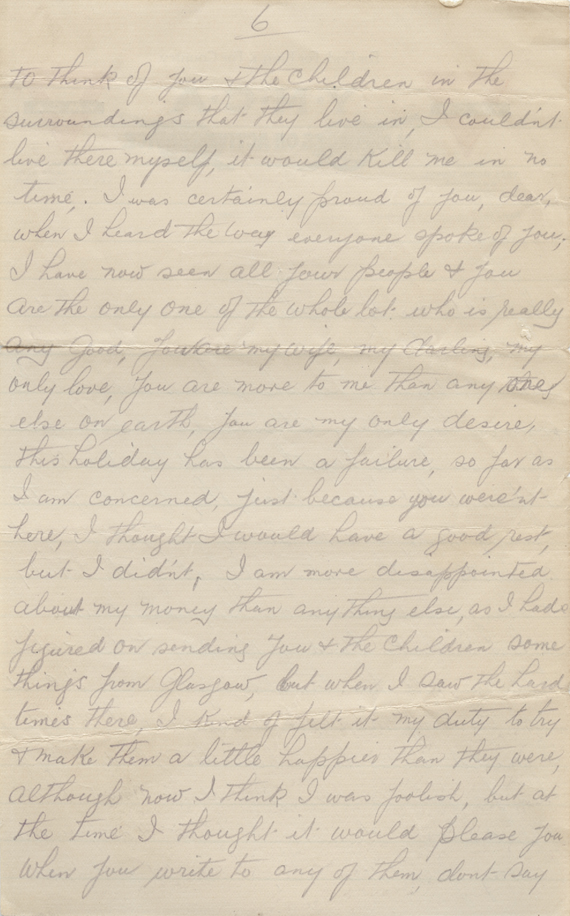 6
to think of you & the Children in the
surroundings that they live in, I couldn't
live there myself, it would Kill me in no
time. I was certainly proud of you, dear,
when I heard the way everyone spoke of you,
I have now seen all your people & you
are the only one of the whole lot who is really
any Good, You are my wife, my darling, my
only love, You are more to me than any
else on earth, You are my only desire,
this holiday has been a failure, so far as
I am concerned, just because you were'nt
here, I thought I would have a good rest,
but I did'nt, I am more disappointed
about my money than anything else, as I had
figured on sending You & the Children some
things from Glasgow, but when I saw the hard
times there, I kind of felt it my duty to try
& make them a little happier than they were,
although now I think I was foolish, but at
the time I thought it would please you
when you write to any of them, dont say